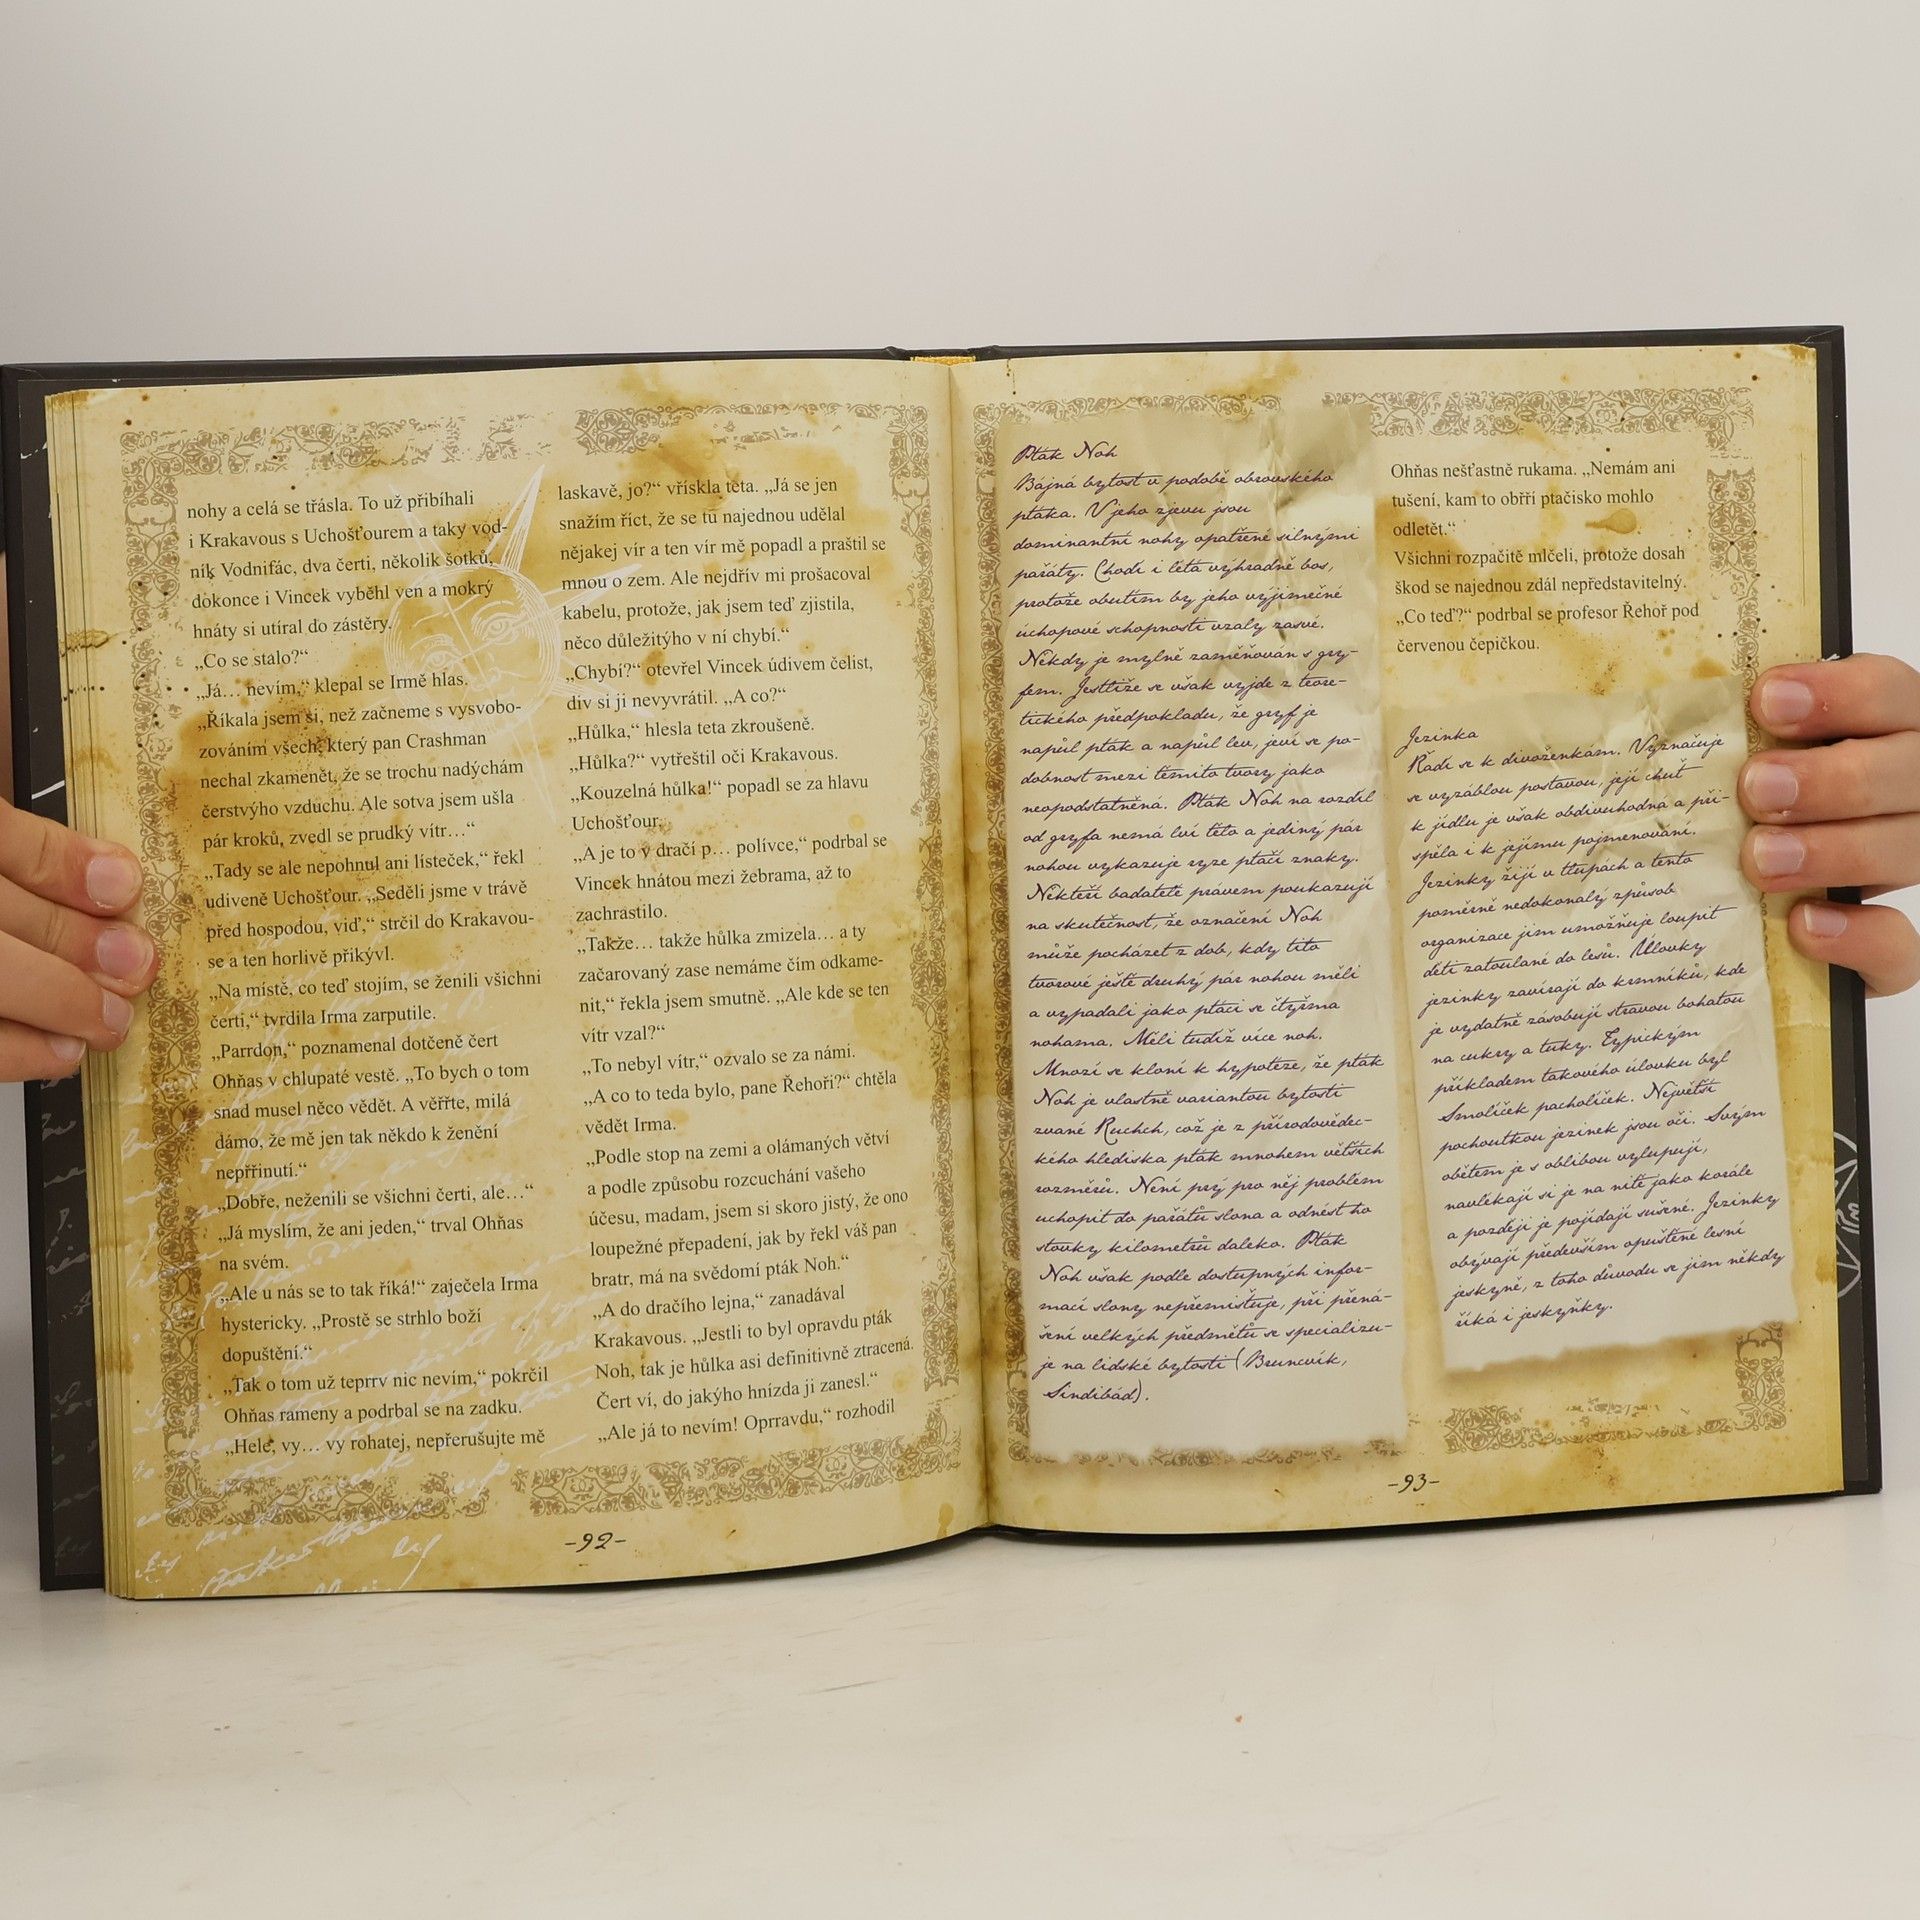 nohy a celá se třásla. To už přibíhali
i Krakavous s Uchošťourem a taky vod-
ník Vodnifác, dva čerti, několik šotků,
dokonce i Vincek vyběhl ven a mokrý
hnáty si utíral do zástěry.
„Co se stalo?“
„Já… nevím,“ klepal se Irmě hlas.
„Říkala jsem si, než začneme s vysvobo-
zováním všech, který pan Crashman
nechal zkamenět, že se trochu nadýchám
čerstvýho vzduchu. Ale sotva jsem ušla
pár kroků, zvedl se prudký vítr…“
„Tady se ale nepohnul ani lísteček,“ řekl
udiveně Uchošťour. „Seděli jsme v trávě
před hospodou, viď,“ strčil do Krakavou-
se a ten horlivě přikývl.
„Na místě, co teď stojím, se ženili všichni
čerti,“ tvrdila Irma zarputile.
„Parrdon,“ poznamenal dotčeně čert
Ohňas v chlupaté vestě. „To bych o tom
snad musel něco vědět. A věřrte, milá
dámo, že mě jen tak někdo k ženění
nepřrinutí.“
„Dobře, neženili se všichni čerti, ale…“
„Já myslím, že ani jeden,“ trval Ohňas
na svém.
„Ale u nás se to tak říká!“ zaječela Irma
hystericky. „Prostě se strhlo boží
dopuštění.“
„Tak o tom už teprrv nic nevím,“ pokrčil
Ohňas rameny a podrbal se na zadku.
„Hele, vy… vy rohatej, nepřerušujte mě
laskavě, jo?“ vřískla teta. „Já se jen
snažím říct, že se tu najednou udělal
nějakej vír a ten vír mě popadl a praštil se
mnou o zem. Ale nejdřív mi prošacoval
kabelu, protože, jak jsem teď zjistila,
něco důležitýho v ní chybí.“
„Chybí?“ otevřel Vincek údivem čelist,
div si ji nevyvrátil. „A co?“
„Hůlka,“ hlesla teta zkroušeně.
„Hůlka?“ vytřeštil oči Krakavous.
„Kouzelná hůlka!“ popadl se za hlavu
Uchošťour.
„A je to v dračí p… polívce,“ podrbal se
Vincek hnátou mezi žebrama, až to
zachrastilo.
„Takže… takže hůlka zmizela… a ty
začarovaný zase nemáme čím odkame-
nit,“ řekla jsem smutně. „Ale kde se ten
vítr vzal?“
„To nebyl vítr,“ ozvalo se za námi.
„A co to teda bylo, pane Řehoři?“ chtěla
vědět Irma.
„Podle stop na zemi a olámaných větví
a podle způsobu rozcuchání vašeho
účesu, madam, jsem si skoro jistý, že ono
loupežné přepadení, jak by řekl váš pan
bratr, má na svědomí pták Noh.“
„A do dračího lejna,“ zanadával
Krakavous. „Jestli to byl opravdu pták
Noh, tak je hůlka asi definitivně ztracená.
Čert ví, do jakýho hnízda ji zanesl.“
„Ale já to nevím! Oprravdu,“ rozhodil
-92-
Pták Noh
Bájná bytost v podobě obrovského
ptáka. V jeho zjevu jsou
dominantní nohy opatřené silnými
pařáty. Chodí i létá výhradně bos,
protože obutím by jeho výjimečné
úchopové schopnosti vzaly zasvé.
Někdy je mylně zaměňován s gry-
fem. Jestliže se však vyjde z teore-
tického předpokladu, že gryf je
napůl pták a napůl lev, jeví se po-
dobnost mezi těmito tvory jako
neopodstatněná. Pták Noh na rozdíl
od gryfa nemá lví tělo a jediný pár
nohou vykazuje ryze ptačí znaky.
Někteří badatelé právem poukazují
na skutečnost, že označení Noh
může pocházet z dob, kdy tito
tvorové ještě druhý pár nohou měli
a vypadali jako ptáci se čtyřma
nohama. Měli tudíž více noh.
Mnozí se kloní k hypotéze, že pták
Noh je vlastně variantou bytosti
zvané Ruchch, což je z přírodovědec-
kého hlediska pták mnohem větších
rozměrů. Není prý pro něj problém
uchopit do pařátů slona a odnést ho
stovky kilometrů daleko. Pták
Noh však podle dostupných infor-
mací slony nepřemisťuje, při přená-
šení velkých předmětů se specializu-
je na lidské bytosti (Bruncvík,
Sindibád).
Ohňas nešťastně rukama. „Nemám ani
tušení, kam to obří ptačisko mohlo
odletět.“
Všichni rozpačitě mlčeli, protože dosah
škod se najednou zdál nepředstavitelný.
„Co teď?“ podrbal se profesor Řehoř pod
červenou čepičkou.
Jezinka
Řadí se k divoženkám. Vyznačuje
se vyzáblou postavou, její chuť
k jídlu je však obdivuhodná a při-
spěla i k jejímu pojmenování.
Jezinky žijí v tlupách a tento
poměrně nedokonalý způsob
organizace jim umožňuje loupit
děti zatoulané do lesů. Úlovky
jezinky zavírají do krmníků, kde
je vydatně zásobují stravou bohatou
na cukry a tuky. Typickým
příkladem takového úlovku byl
Smolíček pacholíček. Největší
pochoutkou jezinek jsou oči. Svým
obětem je s oblibou vylupují,
navlékají si je na nitě jako korále
a později je pojídají sušené. Jezinky
obývají především opuštěné lesní
jeskyně, z toho důvodu se jim někdy
říká i jeskyňky.
-93-